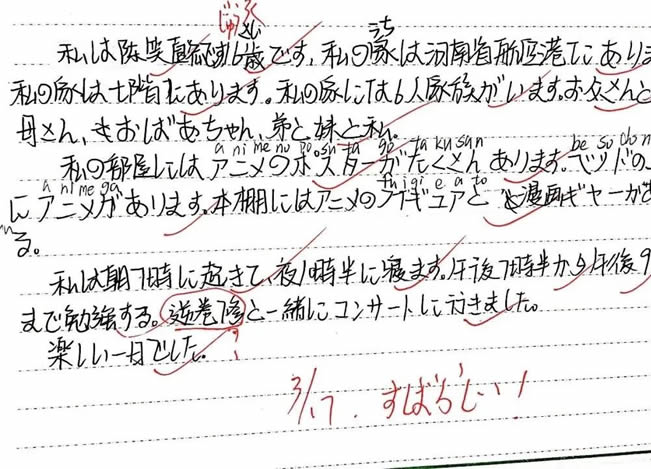 じゅうろく さい うち
私は陈笑 です、私の家は河南省航空港にありま
私の家は七階にあります。私の家には6人家族がいます。お父さんと
母さん、 おばあちゃん、弟と妹と私。
a ni me no po su ta ga ta ku san be
私の部屋にはアニメのポスターがたくさんあります。ベッドの
a ni me ga fu i gi e a to
にアニメがあります。本棚にはアニメのフィギュアと 漫画ギャーが
る。
私は朝7時に起きて、夜10時半に寝ます。午後7時半から午後9
まで勉強する。逆巻 と一緒にコンサートに行きました。
楽しい一日でした。
?
3/17. すばらしい!